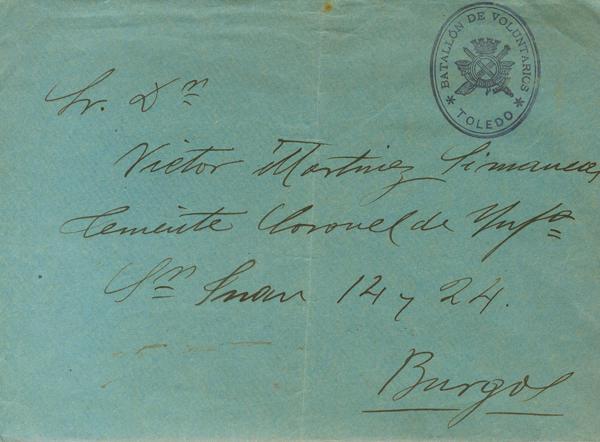 * BATALLÓN DE VOLUNTARIOS *
TOLEDO
Sr. Dn
Victor Martinez Simancas
Teniente Coronel de Infª
Sn Juan 12 y 24.
Burgos